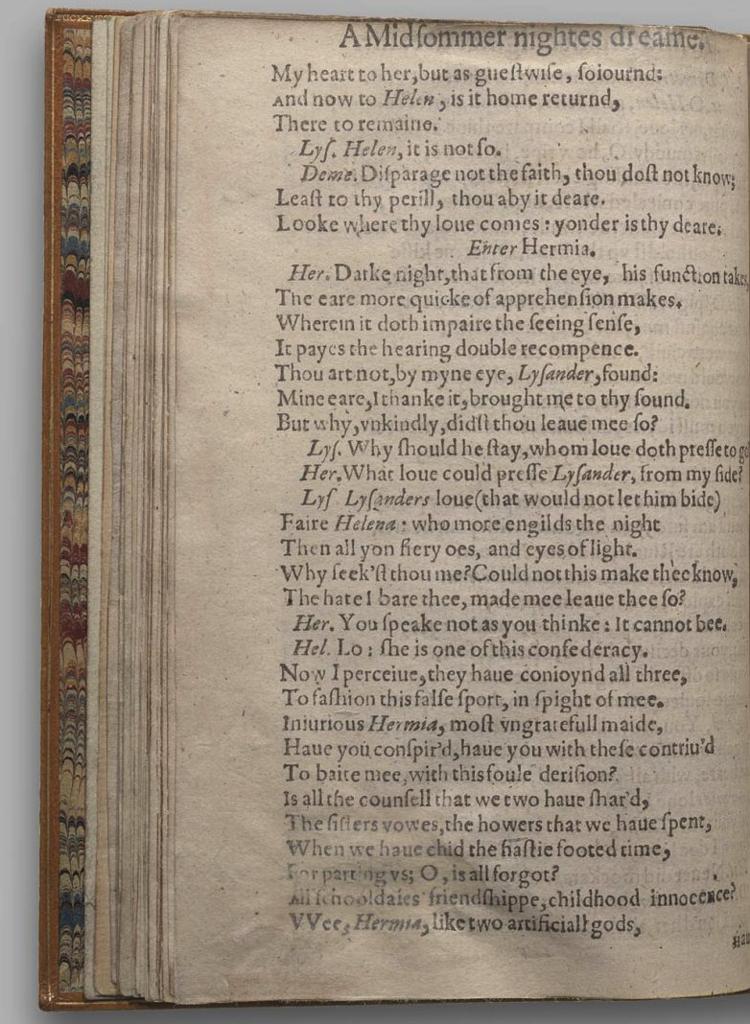 A Midſommer nightes dreame.
My heart to her,but as gueſtwiſe, ſoiournd:
And now to Helen, is it home returnd,
There to remaine.
Lyſ. Helen, it is not ſo.
Deme. Diſparage not the faith, thou doſt not know;
Leaſt to thy perill, thou aby it deare.
Looke where thy loue comes: yonder is thy deare.
Enter Hermia.
Her. Darke night,that from the eye, his function takes,
The eare more quicke of apprehenſion makes.
Wherein it doth impaire the ſeeing ſenſe,
It payes the hearing double recompence.
Thou art not,by myne eye, Lyſander,found:
Mine eare,I thanke it,brought me to thy ſound.
But why,vnkindly,didſt thou leaue mee ſo?
Lyſ. Why ſhould he ſtay,whom loue doth preſſe to go
Her. What loue could preſſe Lyſander, from my ſide?
Lyſ Lyſanders loue(that would not let him bide)
Faire Helena: who more engilds the night
Then all yon fiery oes, and eyes of light.
Why ſeek'ſt thou me?Could not this make thee know,
The hate I bare thee, made mee leaue thee ſo?
Her. You ſpeake not as you thinke: It cannot bee.
Hel. Lo: ſhe is one of this confederacy.
Now I perceiue,they haue conioynd all three,
To faſhion this falſe ſport, in ſpight of mee.
Iniurious Hermia, moſt vngratefull maide,
Haue you conſpir'd,haue you with theſe contriu'd
To baite mee,with this foule deriſion?
Is all the counſell that we two haue ſhar'd,
The ſiſters vowes,the howers that we haue ſpent,
When we haue chid the haſtie footed time,
For parting vs; O, is all forgot?
All ſchooldaies friendſhippe,childhood innocence?
VVee, Hermia, like two artificiall gods,
Hau